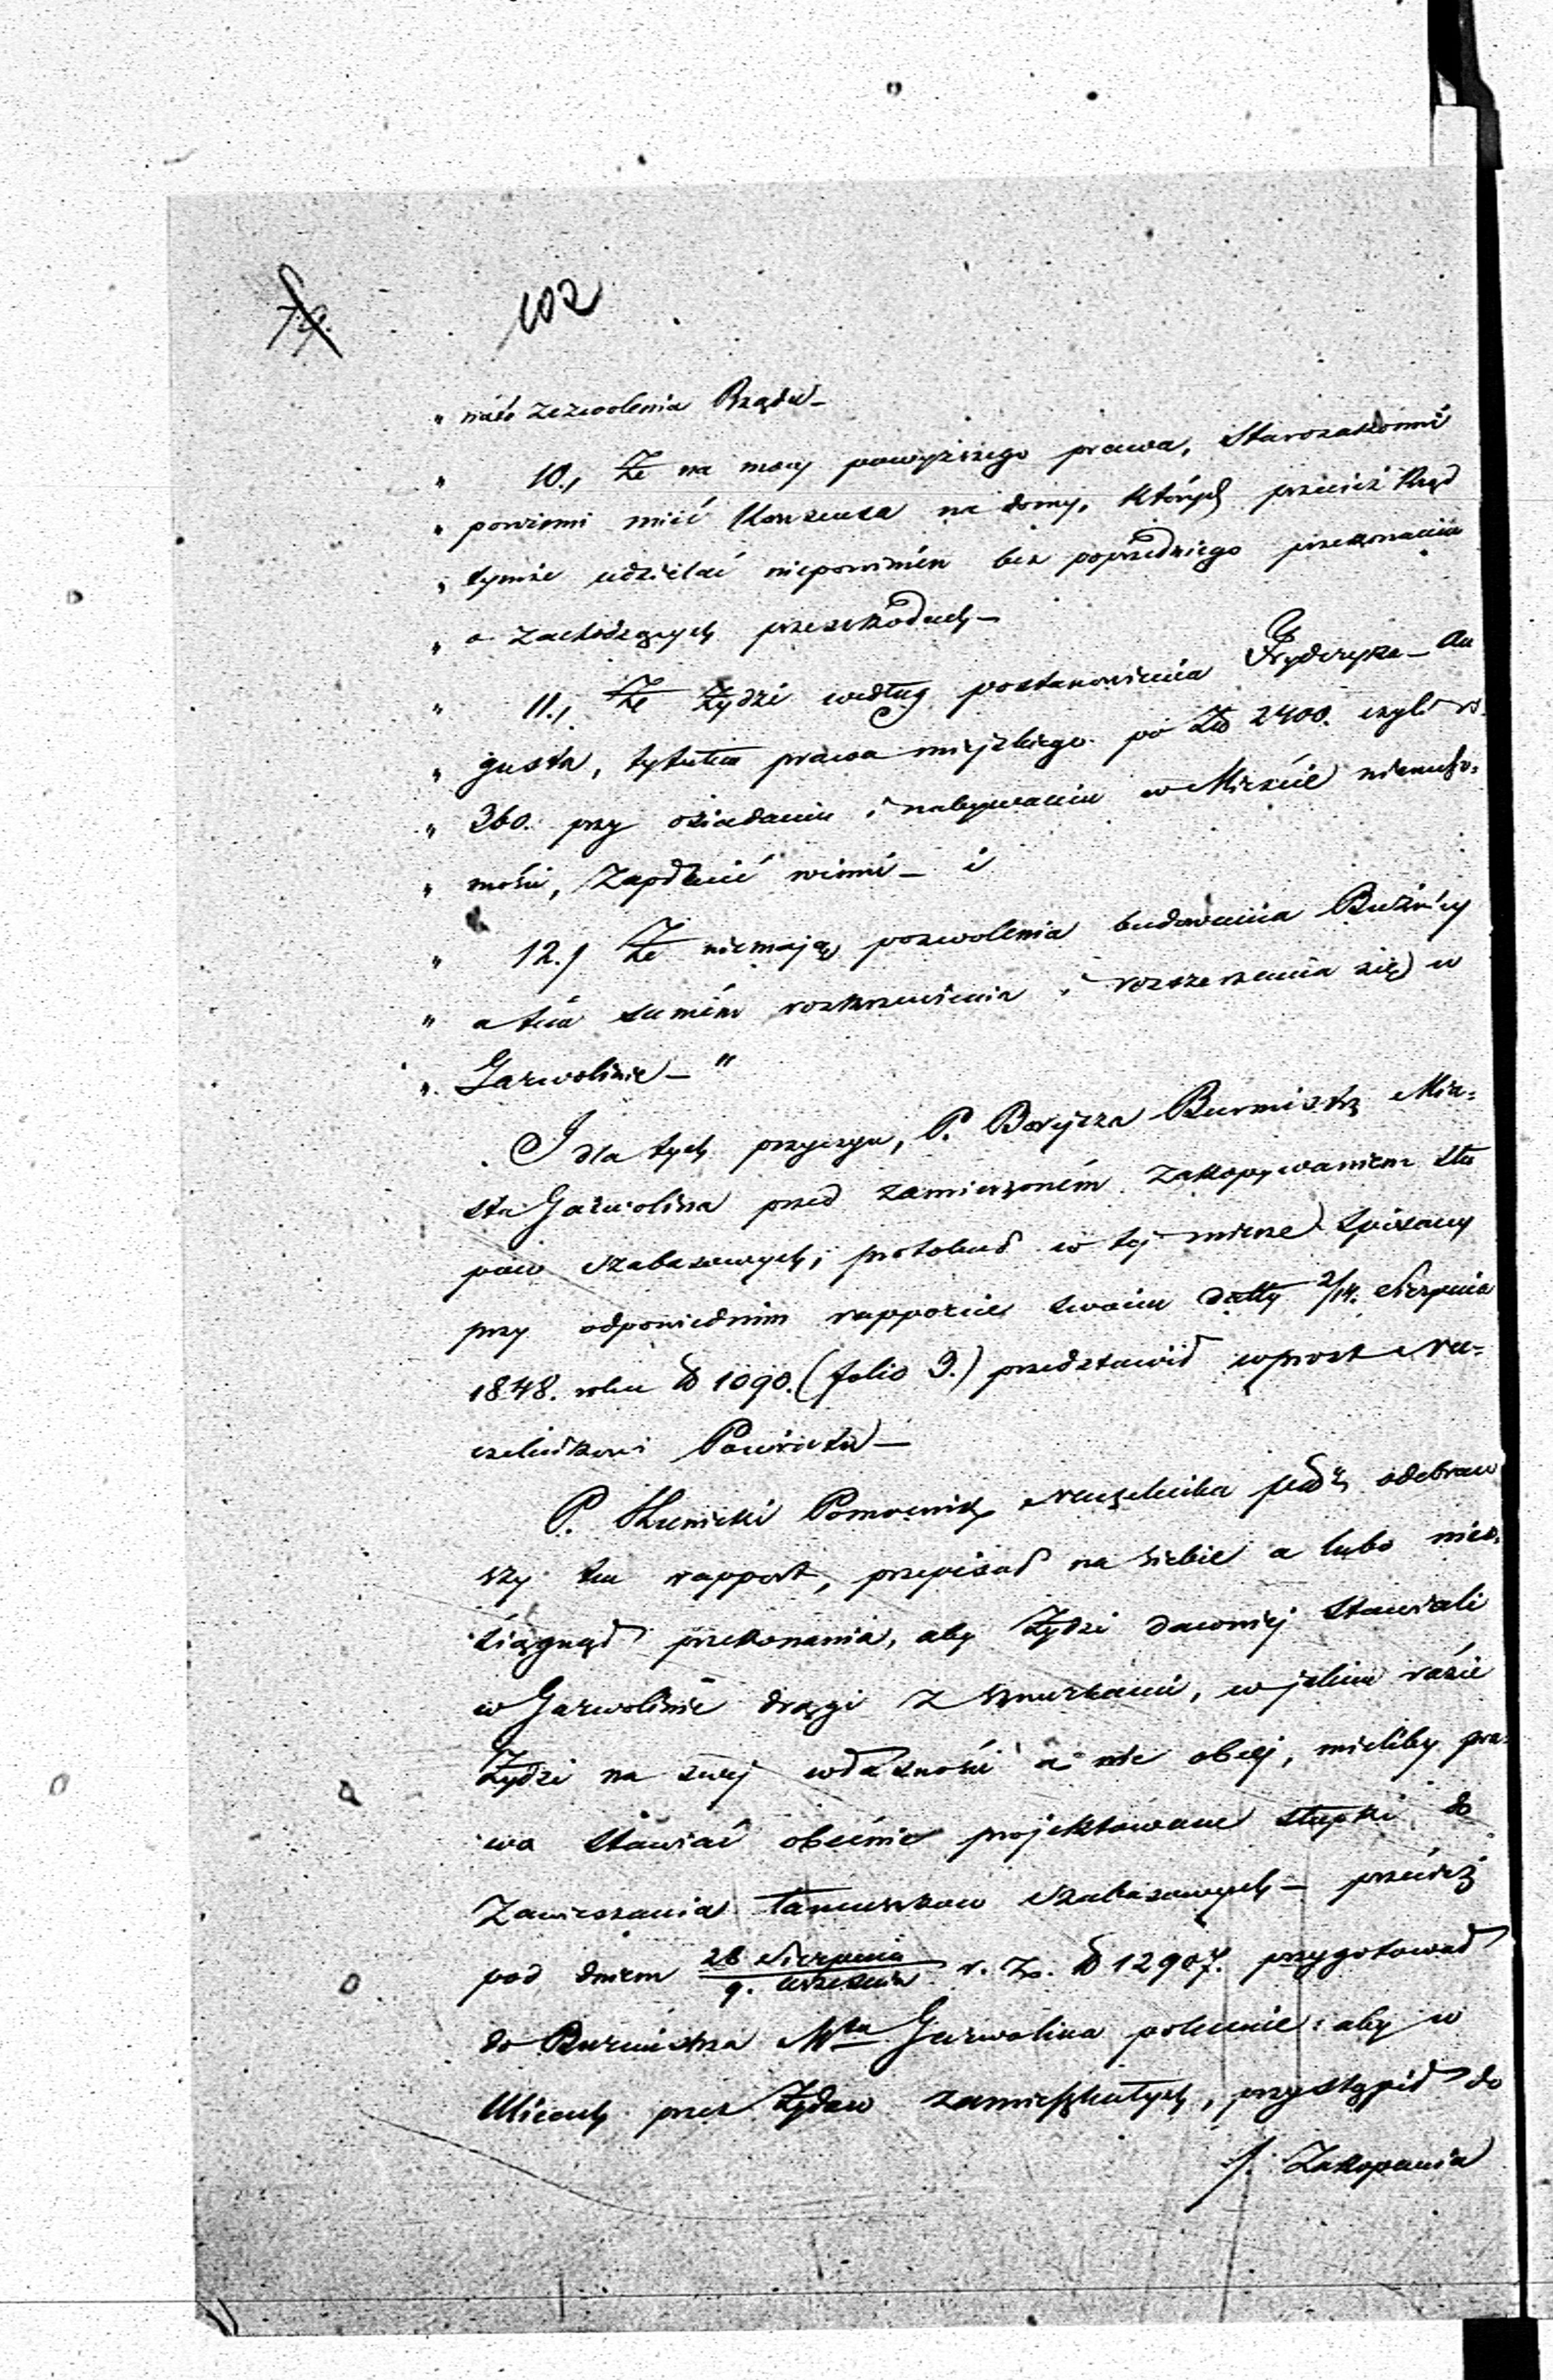 102
„ nato zezwolenia Rządu —
„ 10., Że na mocy powyższego prawa, Starozakonni
„ powinni mieć Konsensa na domy, których przecież Rząd
„ tymże udzielać niepowinien bez poprzedniego przekonania
„ o zachodzących przeszkodach —
„ 11., Że Żydzi według postanowienia Fryderyka Au
„ gusta, tytułem prawa miejskiego po Zł 2400. czyli rs
„ 360. przy osiadaniu i nabywaniu w Mieście nierucho-
„ mości, zapłacić winni — i
„ 12., Że niemając pozwolenia budowania Bużnicy
„ a tém samém rozkrzewienia i rozszerzenia się w
„ Garwolinie — "
I dla tych przyczyn, P. Borycza Burmistrz Mia-
sta Garwolina przed zamierzoném zakopywaniem słu
pów szabasowych, protokuł w tej mierze spisany
przy odpowiednim rapporcie swoim datty 2/14. Sierpnia
1848. roku № 1090. (folio 3.) przedstawił wprost Na-
czelnikowi Powiatu —
P. Kunicki Pomocnik Naczelnika odebraw
szy ten rapport, przepisał na siebie a lubo nieo-
siągnął przekonania, aby Żydzi dawniej stawiali
w Garwolinie drągi z sznurkami, w jakim razie
Żydzi na swej własności a nie obcej, mieliby pra-
wo stawiać obecnie projektowane słupki do
zawieszania łańcuszkow szabasowych — przecież
pod dniem 28 Sierpnia / 9. Września r. z. № 12907. przygotował
do Burmistrza Mta Garwolina polecenie: aby w
Ulicach przez Żydow zamieszkałych, przystąpił do
/. Zakopania